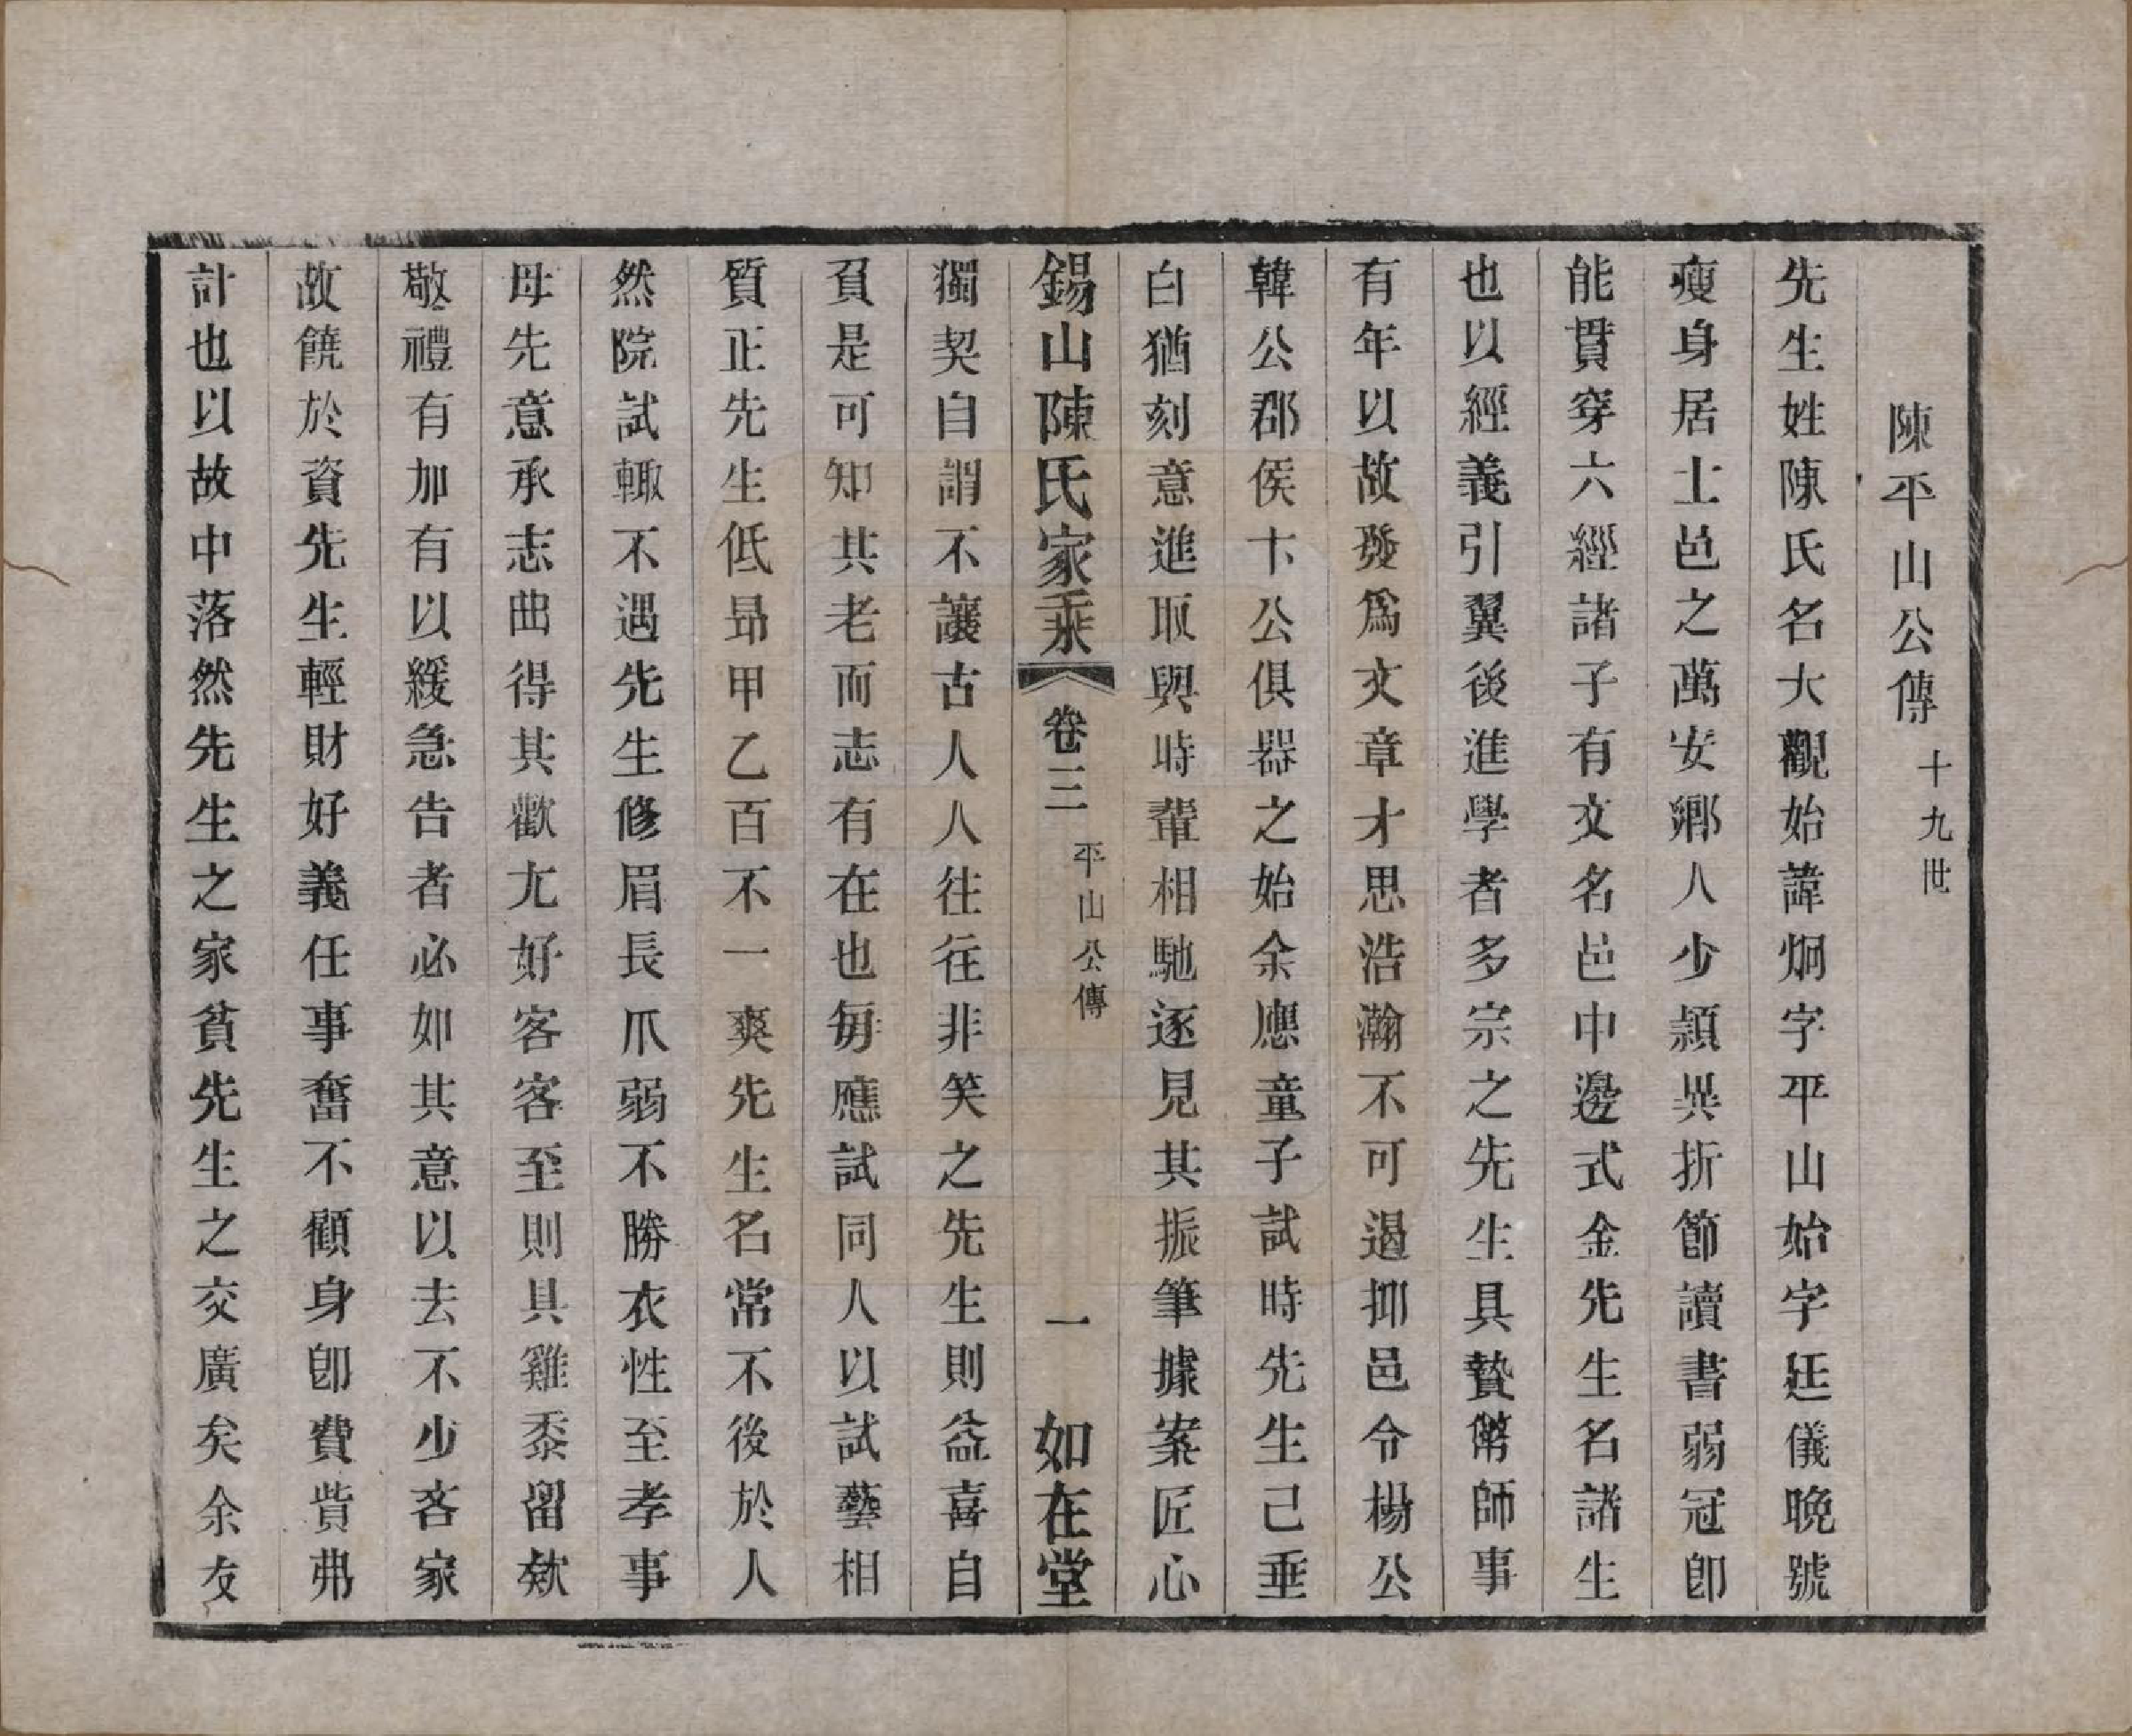 陳平山公傳 十九世
先生姓陳氏名大觀始諱炯字平山始字廷儀晚號
瘦身居士邑之萬安鄉人少頴異折節讀書弱冠卽
能貫穿六經諸子有文名邑中邊式金先生名諸生
也以經義引翼後進學者多宗之先生具贄幣師事
有年以故發爲文章才思浩瀚不可遏抑邑令楊公
韓公郡侯卞公俱器之始余應童子試時先生已垂
白猶刻意進取與時輩相馳逐見其振筆據案匠心
錫山陳氏家乘 卷三 平山公傳 一 如在堂
獨契自謂不讓古人人往往非笑之先生則益喜自
負是可知其老而志有在也每應試同人以試藝相
質正先生低昻甲乙百不一爽先生名常不後於人
然院試輙不遇先生修眉長爪弱不勝衣性至孝事
母先意承志曲得其歡尤好客客至則具雞黍留欵
敬禮有加有以緩急告者必如其意以去不少吝家
故饒於資先生輕財好義任事奮不顧身卽費貲弗
計也以故中落然先生之家貧先生之交廣矣余友